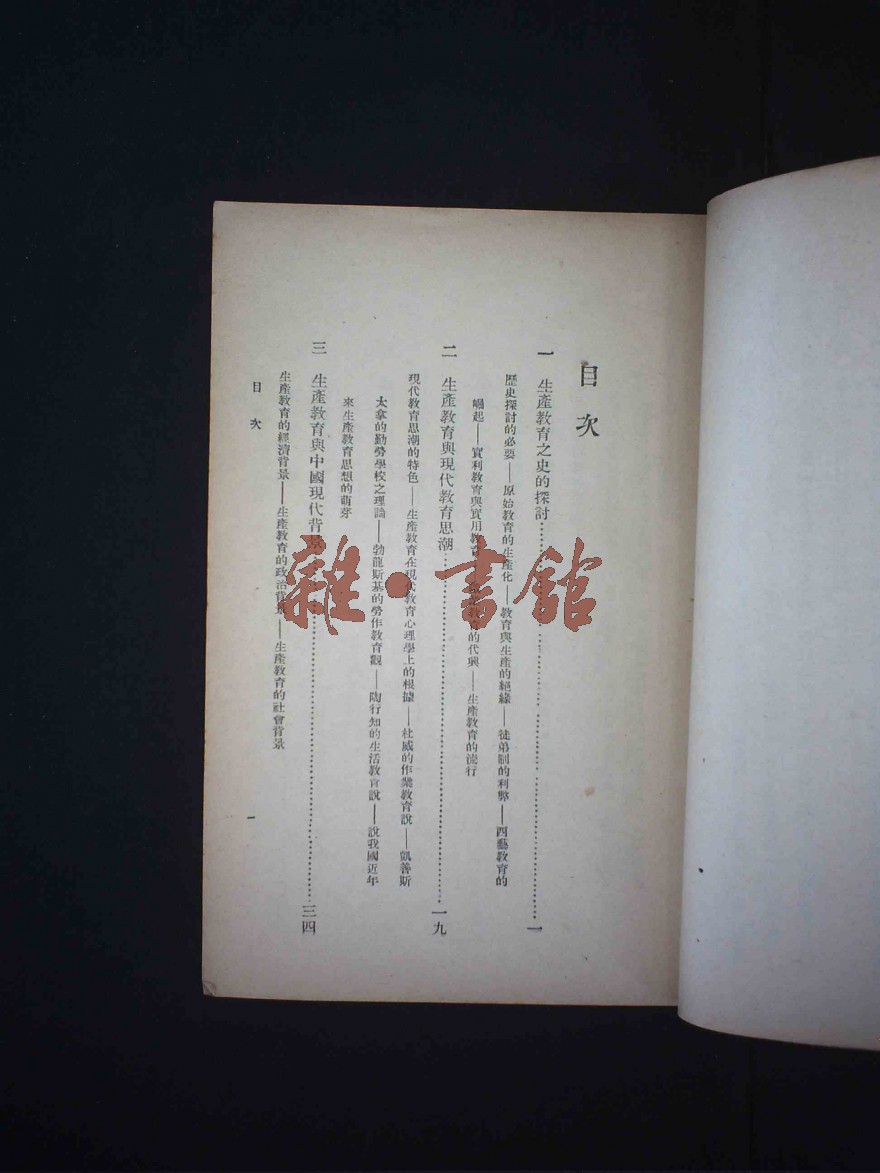 目次
一 生產教育之史的探討……一
歷史探討的必要——原始教育的生產化——教育與生產的絕緣——徒弟制的利弊——四藝教育的
崛起——實利教育與實用教育 的代興——生產教育的流行
二 生產教育與現代教育思潮……一九
現代教育思潮的特色——生產教育在現代教育心理學上的根據——杜威的作業教育說——凱善斯
太拿的勤勞學校之理論——勃龍斯基的勞作教育觀——陶行知的生活教育說——說我國近年
來生產教育思想的萌芽
三 生產教育與中國現代背景……三四
生產教育的經濟背景——生產教育的政治背景——生產教育的社會背景
目次
一
雜·書館